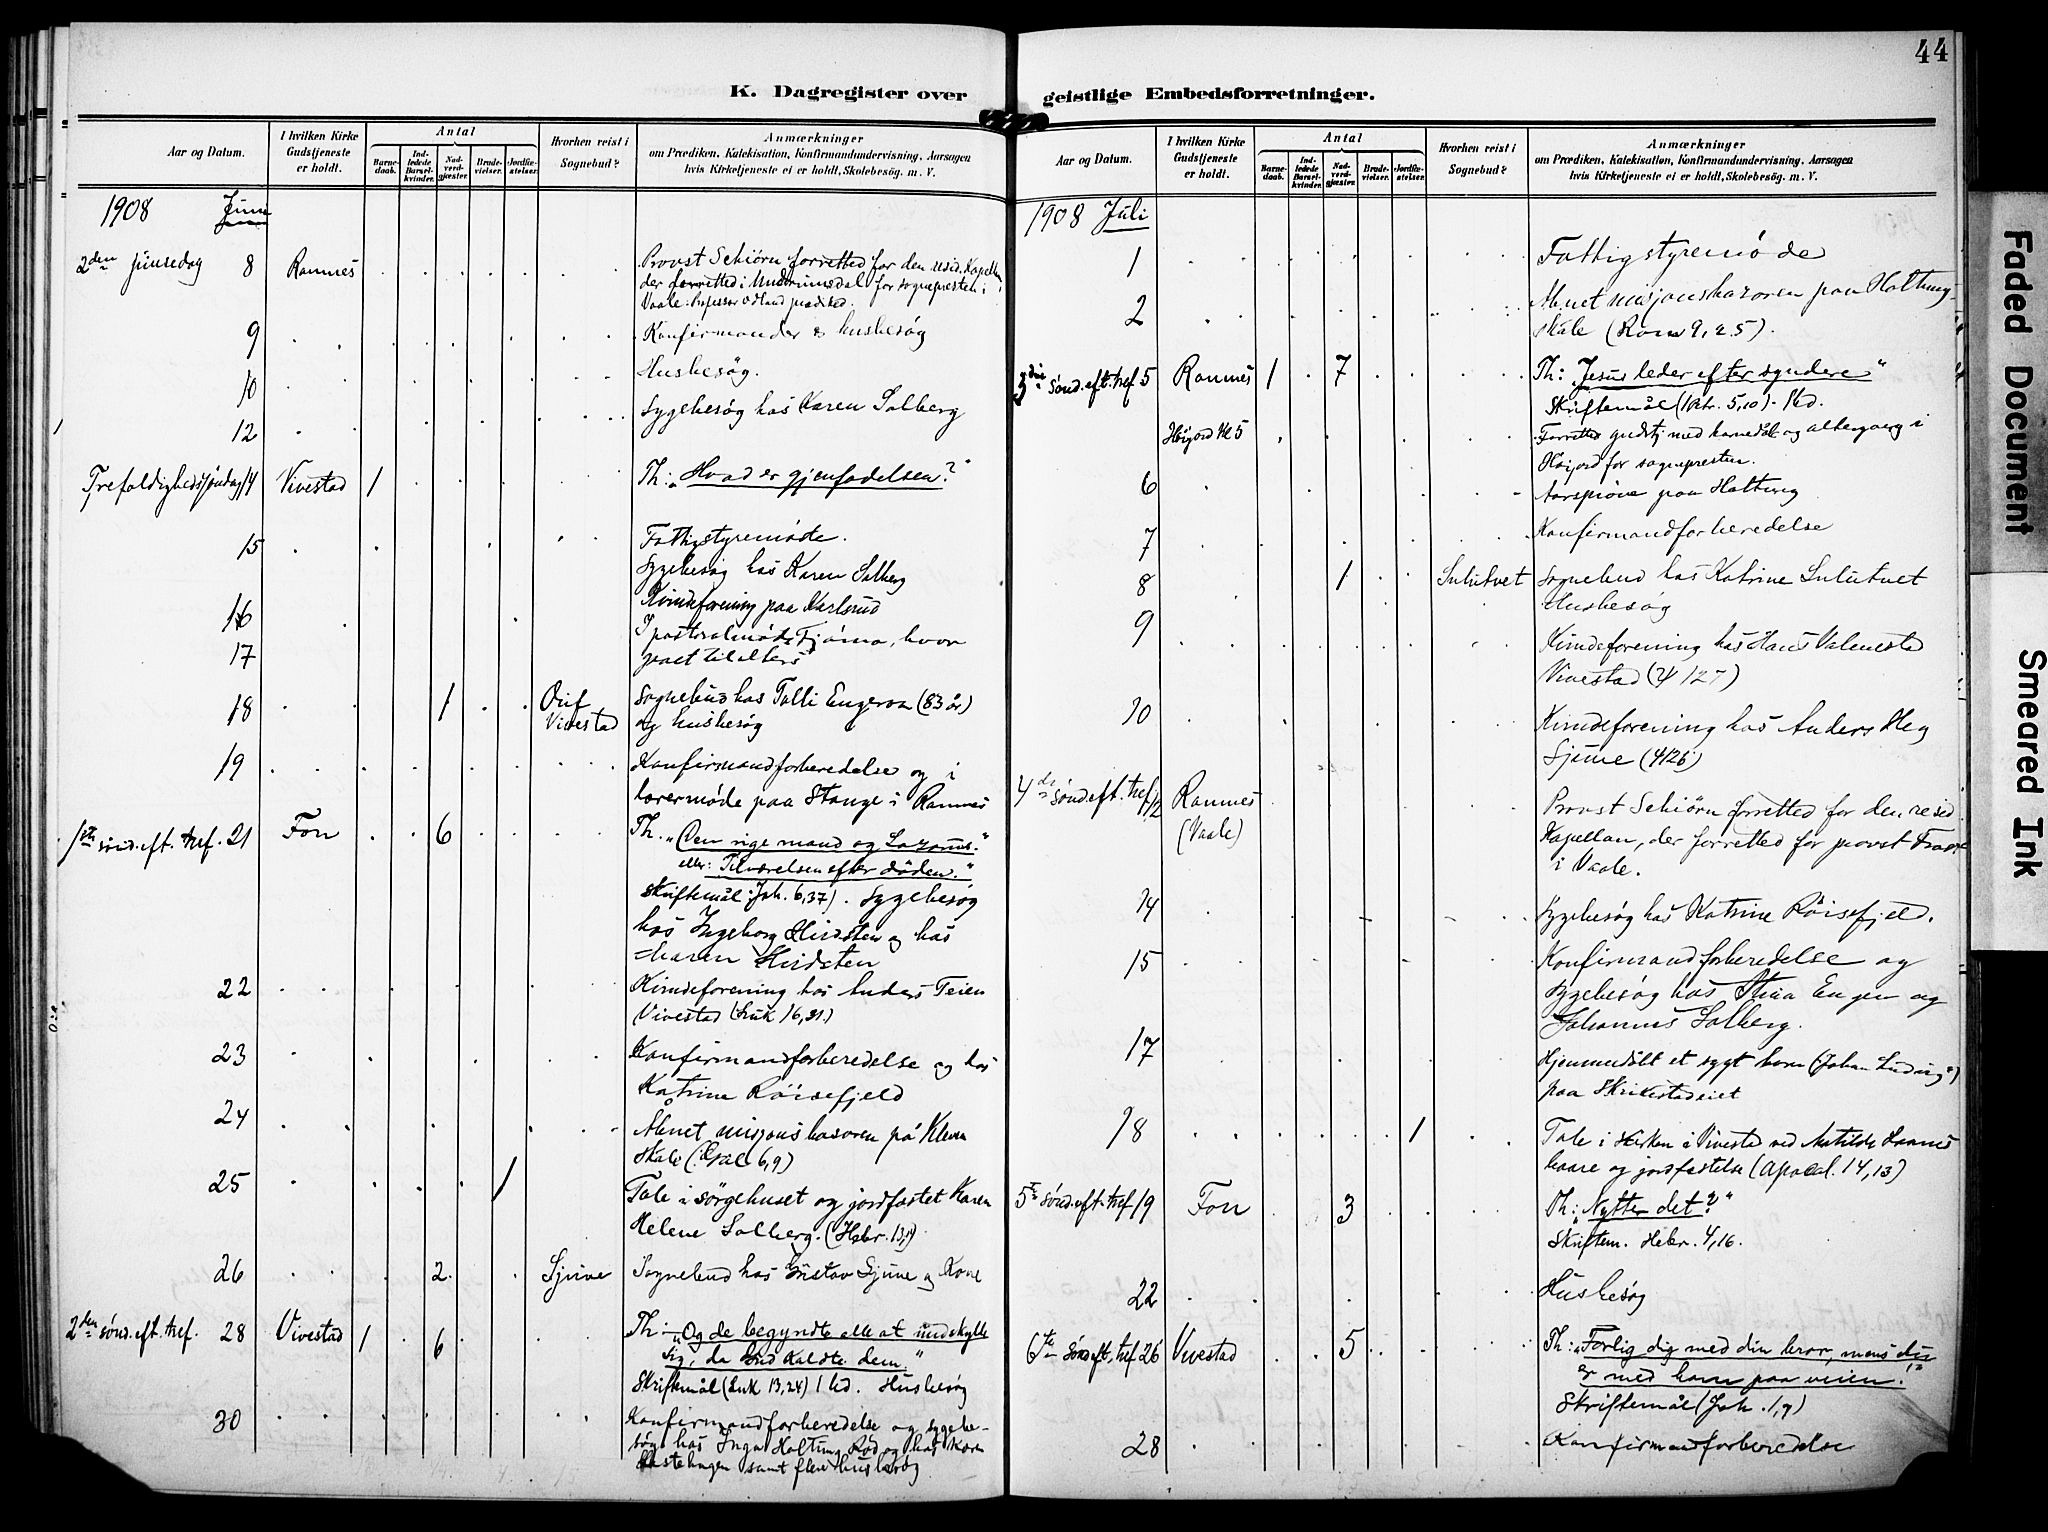 44
K. Dagregister over geistlige Embedsforretninger.
Aar og Datum.
I hvilken Kirke Gudstjeneste er holdt.
Antal
Barnedaab.
Indledede Barselkvinder.
Nadverdgjæster.
Brudevielser.
Jordfæstelser.
Hvorhen reist i Sognebud?
Anmærkninger
om Prædiken, Katekisation, Konfirmandundervisning, Aarsagen
hvis Kirketjeneste ei er holdt, Skolebesøg. m. V.
1908 Juni
2den pinsedag 8 Ramnes Provst Schiørn forretted for den resid. Kapellan
der forretted i Undrumsdal for sognepresten i
Vaale. Professor Odland prædiked.
9 Konfirmander & husbesøg
10 Husbesøg.
12 Sygebesøg hos Karen Solberg
Trefoldighedssøndag 14 Vivestad 1 Th: „Hvad er gjenfødelsen?"
15 Fattigstyremøde.
Sygebesøg hos Karen Solberg
16 Kvindeforening paa
17 I pastoralmøde Tjømø, hvor
gaaet til alters
18 1 Vivestad Sognebud hos (83 år)
og husbesøg
19 Konfirmandforberedelse og i
lærermøde paa Stange i Ramnes
1ste sønd. eft. tref. 21 Fon 6 Th. „Den rige mand og Lazarus."
eller: „Tilværelsen efter døden."
Skriftemål: Joh. 6,37). Sygebesøg
hos Ingeborg Hvidsten og hos
Maren Hvidsten
22 Kvindeforening hos Anders Teien
Vivestad (Luk 16,31.)
23 Konfirmandforberedelse og hos
Katrine Röisefjeld
24 Åbnet misjonsbasaren på Kleven
Skole (Gal 6,9)
25 1 Tale i sörgehuset og jordfæstet Karen
Helene Solberg. (Hebr. 13,14)
26 2 Gjuve Sognebud hos Gustav Gjuve og Kone
2den sønd. eft. tref. 28 Vivestad 1 6 Th: „Og de begyndte alle at undskylde
sig, da Gud kaldte dem."
Skriftemål (Luk 13,24) 1 kd. Husbesøg
30 Konfirmandforberedelse og sygebe-
søg hos Inga Holtung Rød og hos Karen
samt flere husbesøg
K. Dagregister over geistlige Embedsforretninger.
Aar og Datum.
I hvilken Kirke Gudstjeneste er holdt.
Antal
Barnedaab.
Indledede Barselkvinder.
Nadverdgjæster.
Brudevielser.
Jordfæstelser.
Hvorhen reist i Sognebud?
Anmærkninger
om Prædiken, Katekisation, Konfirmandundervisning, Aarsagen
hvis Kirketjeneste ei er holdt, Skolebesøg. m. V.
1908 Juli
1 Fattigstyremöde
2 Åbnet misjonsbasaren paa Holtung
skole (Rom 9, 25).
3die sønd. eft. tref 5 Ramnes 1 7 Th: „Jesus leder efter syndere"
Skriftemål (1 Petr. 5,10). 1 kd.
Høijord kl 5 Forretted gudstj med barnedåb og altergang i
Høijord for sognepresten.
6 Aarsprøve paa Holtung
7 Konfirmandforberedelse
8 1 Sulutvet Sognebud hos Katrine Sulutvet
Husbesøg
9 Kvindeforening hos Hans Valmestad
Vivestad (ψ 127)
10 Kvindeforening hos Anders
Gjuve (ψ 126)
4de sønd. eft. tref. 12 Ramnes Provst Schiørn forretted for den resid
(Vaale) Kapellan, der forretted for provst
i Vaale.
14 Sygebesøg hos Katrine Röisefjeld.
15 Konfirmandforberedelse og
sygebesøg hos Stina Engen og
Johannes Solberg.
17 Hjemmedöbt et sygt barn (Johan Ludvig)
paa Skrikestadeiet
18 1 Tale i kirken i Vivestad ved Matilde
baare og jordfæstelse (Apocal. 14,13)
5te sønd. eft. tref 19 Fon 3 Th: „Nytter det?"
Skriftem. Hebr. 4,16.
22 Husbesög
6te sønd. eft. tref 26 Vivestad 5 Th: „Forlig dig med din bror, mens du
er med ham paa veien!"
Skriftemål (Joh. 1,9)
28 Konfirmandforberedelse
Faded Document Smeared Ink